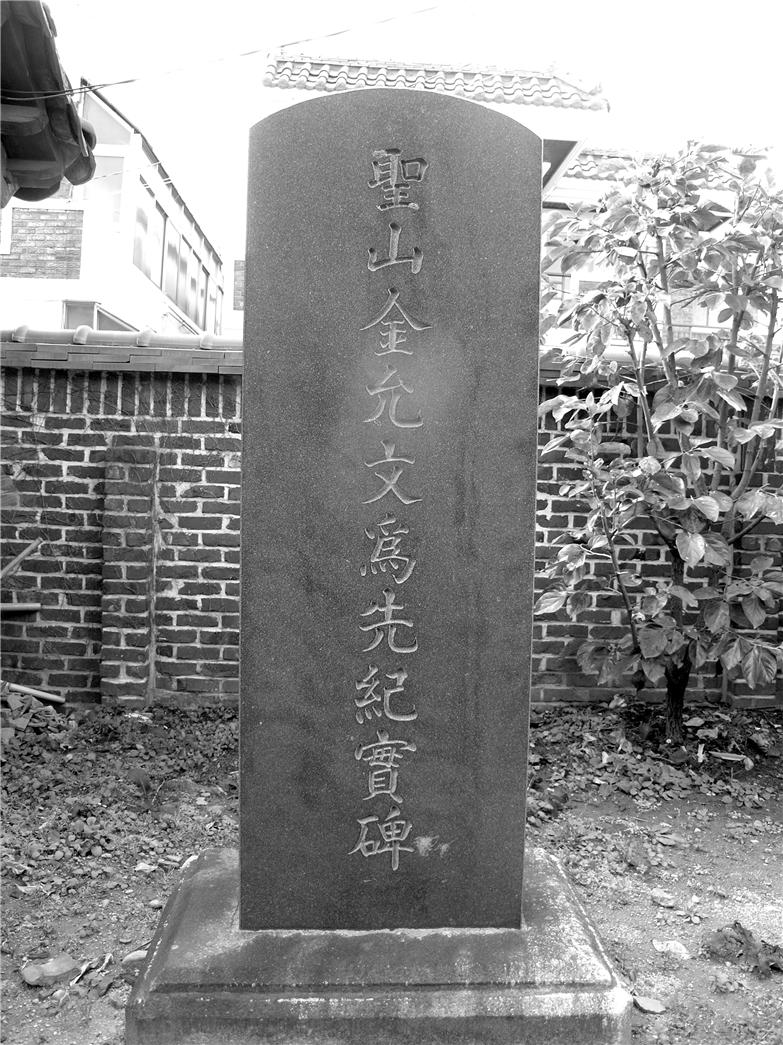 聖山金允文爲先紀實碑